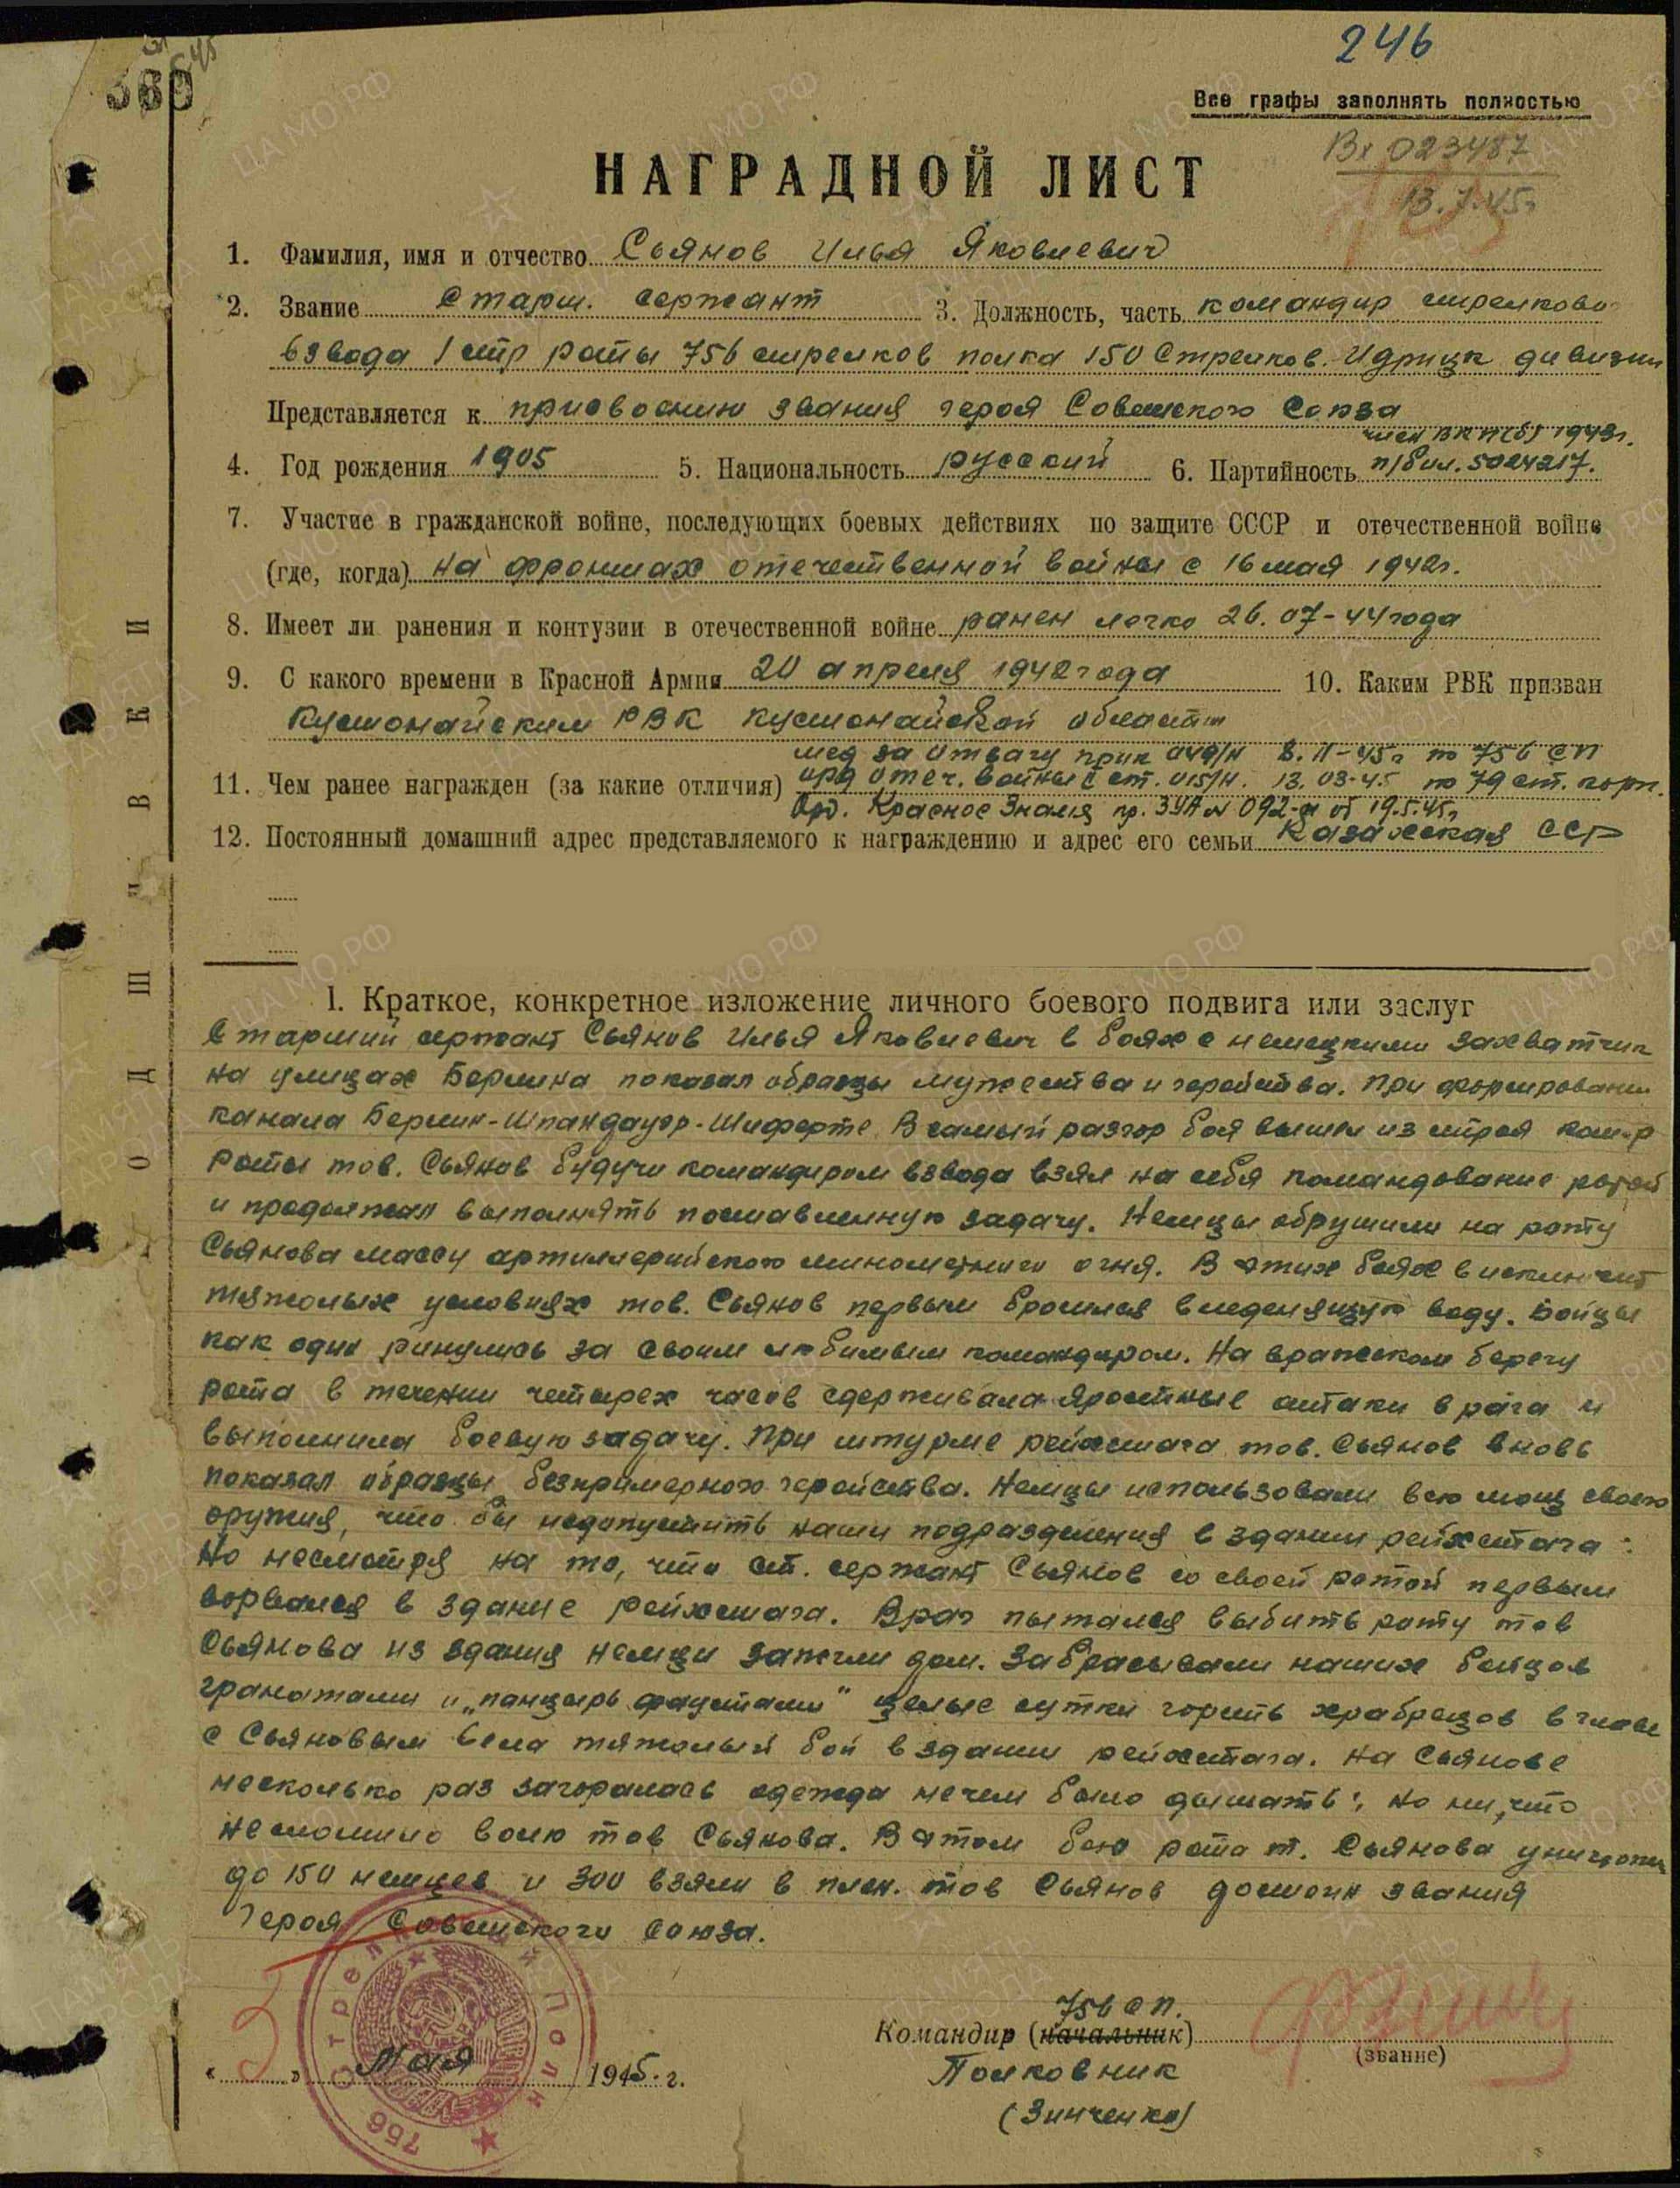 246
360
Все графы заполнять полностью
Вх 023487
13.7.45г
НАГРАДНОЙ ЛИСТ
1. Фамилия, имя и отчество Сьянов Илья Яковлевич
2. Звание Старш. сержант 3. Должность, часть командир стрелково
взвода 1 стр роты 756 стрелков полка 150 Стрелков. Идрицк дивизии
Представляется к присвоению звания героя Советского Союза
член ВКП(б) 1943г.
4. Год рождения 1905 5. Национальность русский 6. Партийность п/бил. 5024217.
7. Участие в гражданской войне, последующих боевых действиях по защите СССР и отечественной войне
(где, когда) на фронтах отечественной войны с 16 мая 1942г.
8. Имеет ли ранения и контузии в отечественной войне ранен легко 26.07-44 года
9. С какого времени в Красной Армии 20 апреля 1942 года 10. Каким РВК призван
Кустонайским РВК Кустонайской области
мед за Отвагу прик 049/н 8.II-45г по 756 СП
11. Чем ранее награжден (за какие отличия) орд Отеч. войны ст. 015/н. 13.03-45 по 79 ст. корп.
Орд. Красное Знамя пр. 3УА № 092-н от 19.5.45г
12. Постоянный домашний адрес представляемого к награждению и адрес его семьи Казахская ССР
ПОДШИВКИ
1. Краткое, конкретное изложение личного боевого подвига или заслуг
Старший сержант Сьянов Илья Яковлевич в боях с немецкими захватчик
на улицах Берлина показал образцы мужества и геройства. При форсировании
канала Берлин-Шпандауэр-Шиферте В самый разгар боя вышел из строя ком-р
роты тов. Сьянов будучи командиром взвода взял на себя командование ротой
и продолжал выполнять поставленную задачу. Немцы обрушили на роту
Сьянова массу артиллерийского минометного огня. В этих боях в исключит
тяжолых условиях тов. Сьянов первым бросился в леденящую воду. Бойцы
как один ринулись за своим любимым командиром. На вражеском берегу
рота в течении четырех часов сдерживала яростные атаки врага и
выполнила боевую задачу. При штурме рейхстага тов. Сьянов вновь
показал образцы безпримерного геройства. Немцы использовали всю мощ своего
оружия, что бы недопустить наши подразделения в здании рейхстага:
Но несмотря на то, что ст. сержант Сьянов со своей ротой первым
ворвался в здание рейхстага. Враг пытался выбить роту тов
Сьянова из здания немци зажгли дом. Забрасывали наших бойцов
гранатами и „панцырь фаустами" целые сутки горсть храбрецов в главе
с Сьяновым вела тяжолый бой в здании рейхстага. На Сьянове
несколько раз загоралась одежда нечем было дышать; но ни, что
несломило волю тов Сьянова. В этом бою рота т. Сьянова уничтожил
до 150 немцев и 300 взяли в плен. тов Сьянов достоин звания
Героя Советского Союза.
756 СП.
Командир (начальник)
(звание)
Полковник
(Зинченко)
« 5 » Мая 1945 г.
Стрелковый Полк 756